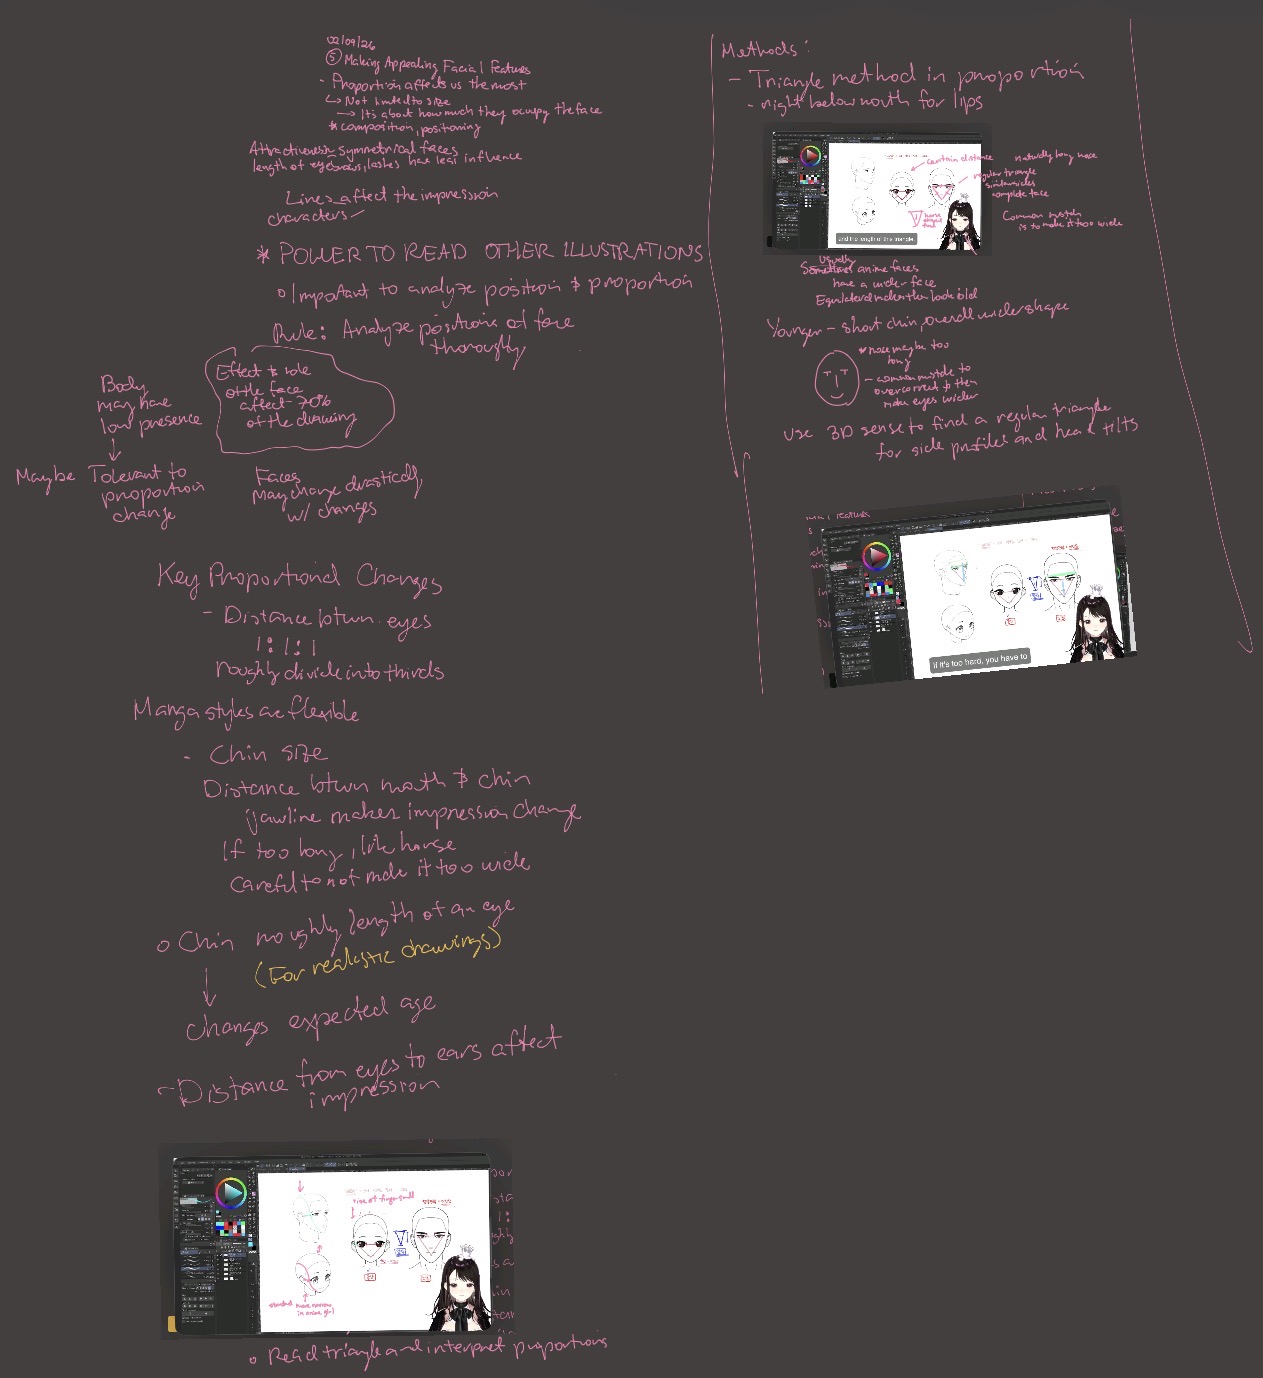 02/09/26
⑤ Making Appealing Facial Features
- Proportion affects us the most
↳ Not limited to size
→ It's about how much they occupy the face
* composition, positioning
Attractiveness - symmetrical faces
length of eyebrows, lashes have less influence
Lines affect the impression
characters
* POWER TO READ OTHER ILLUSTRATIONS
o Important to analyze position & proportion
Rule: Analyze positions of face
thoroughly
Effect & role
of the face
affect ~70%
of the drawing
Body
may have
low presence
↓
Maybe Tolerant to
proportion
change
Faces
May change drastically
w/ changes
Key Proportional Changes
- Distance btwn eyes
1:1:1
roughly divide into thirds
Manga styles are flexible
- Chin size
Distance btwn mouth & chin
jawline makes impression change
If too long, like horse
Careful to not make it too wide
o Chin roughly length of an eye
(For realistic drawings)
↓
changes expected age
- Distance from eyes to ears affect
impression
o Read triangle and interpret proportions
Methods:
- Triangle method in proportion
- right below mouth for lips
certain distance
naturally long nose
regular triangle
similar sides
complete face
Common mistake
is to make it too wide
and the length of this triangle.
Usually
Sometimes anime faces
have a wider face
Equilateral makes them look old
Younger - short chin, overall wider shape
* nose maybe too
long
- common mistake to
overcorrect & then
make eyes wider
use 3D sense to find a regular triangle
for side profiles and head tilts
If it's too hard, you have to